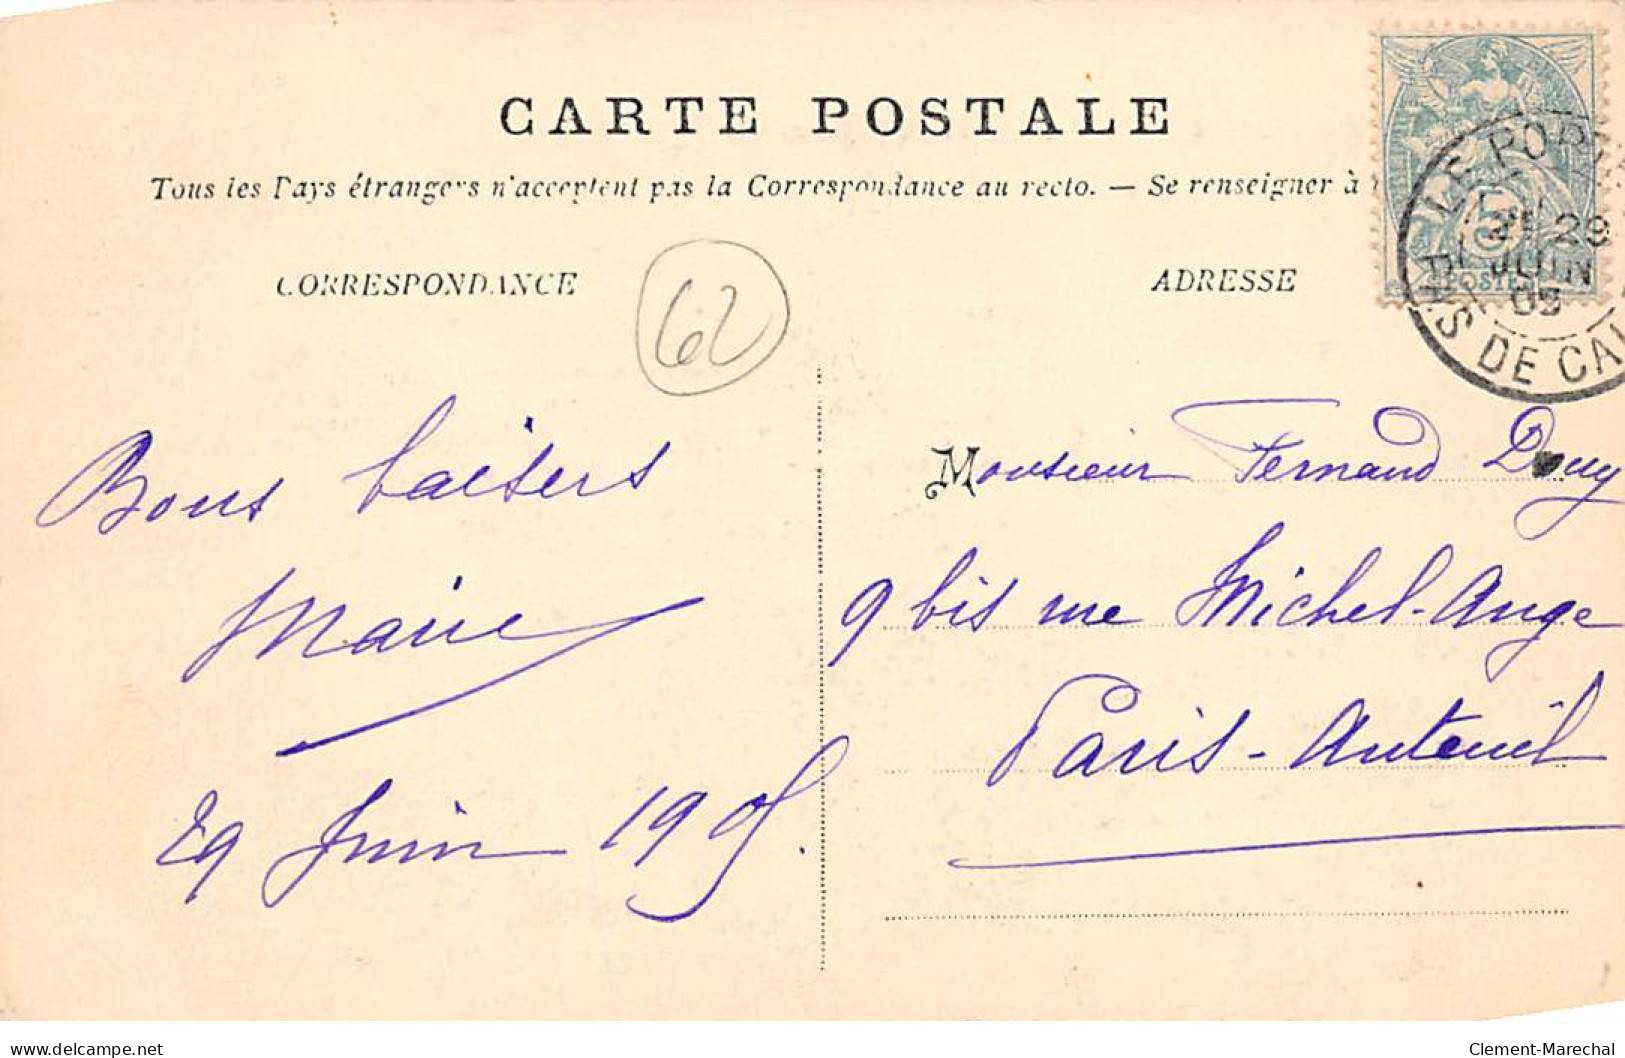 CARTE POSTALE
Tous les Pays étrangers n'acceptent pas la Correspondance au recto. — Se renseigner à
CORRESPONDANCE
ADRESSE
62
POSTES
5
LE PORTEL
29
JUIN
05
PAS DE CAL
Bons baisers
Marie
29 Juin 1905.
Monsieur Fernand
9 bis rue Michel-Ange
Paris-Auteuil
delcampe.net
Clement-Marechal